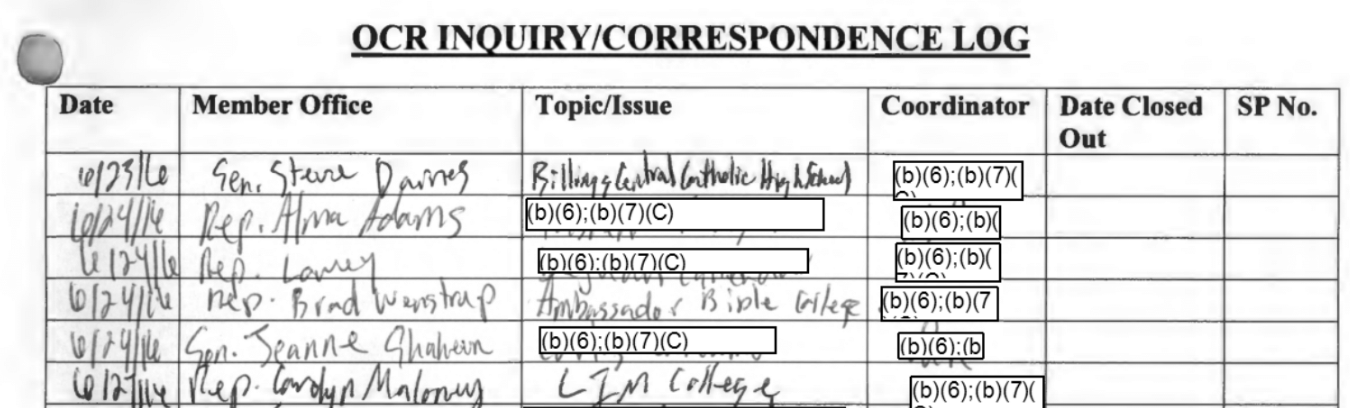 OCR INQUIRY/CORRESPONDENCE LOG
Date Member Office Topic/Issue Coordinator Date Closed Out SP No.
6/23/16 Sen. Steve Daines Billings Central Catholic High School (b)(6);(b)(7)(
6/24/16 Rep. Alma Adams (b)(6);(b)(7)(C) (b)(6);(b)(
6/24/16 Rep. (b)(6);(b)(7)(C) (b)(6);(b)(
6/24/16 Rep. Brad Wenstrup Ambassador Bible College (b)(6);(b)(7
6/24/16 Sen. Jeanne Shaheen (b)(6);(b)(7)(C) (b)(6);(b
6/27/16 Rep. Carolyn Maloney LIM College (b)(6);(b)(7)(